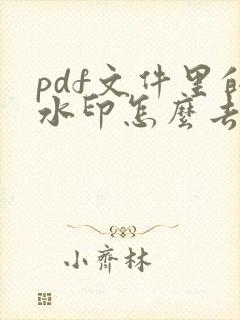 pdf文件里的
水印怎麼去
小齊林